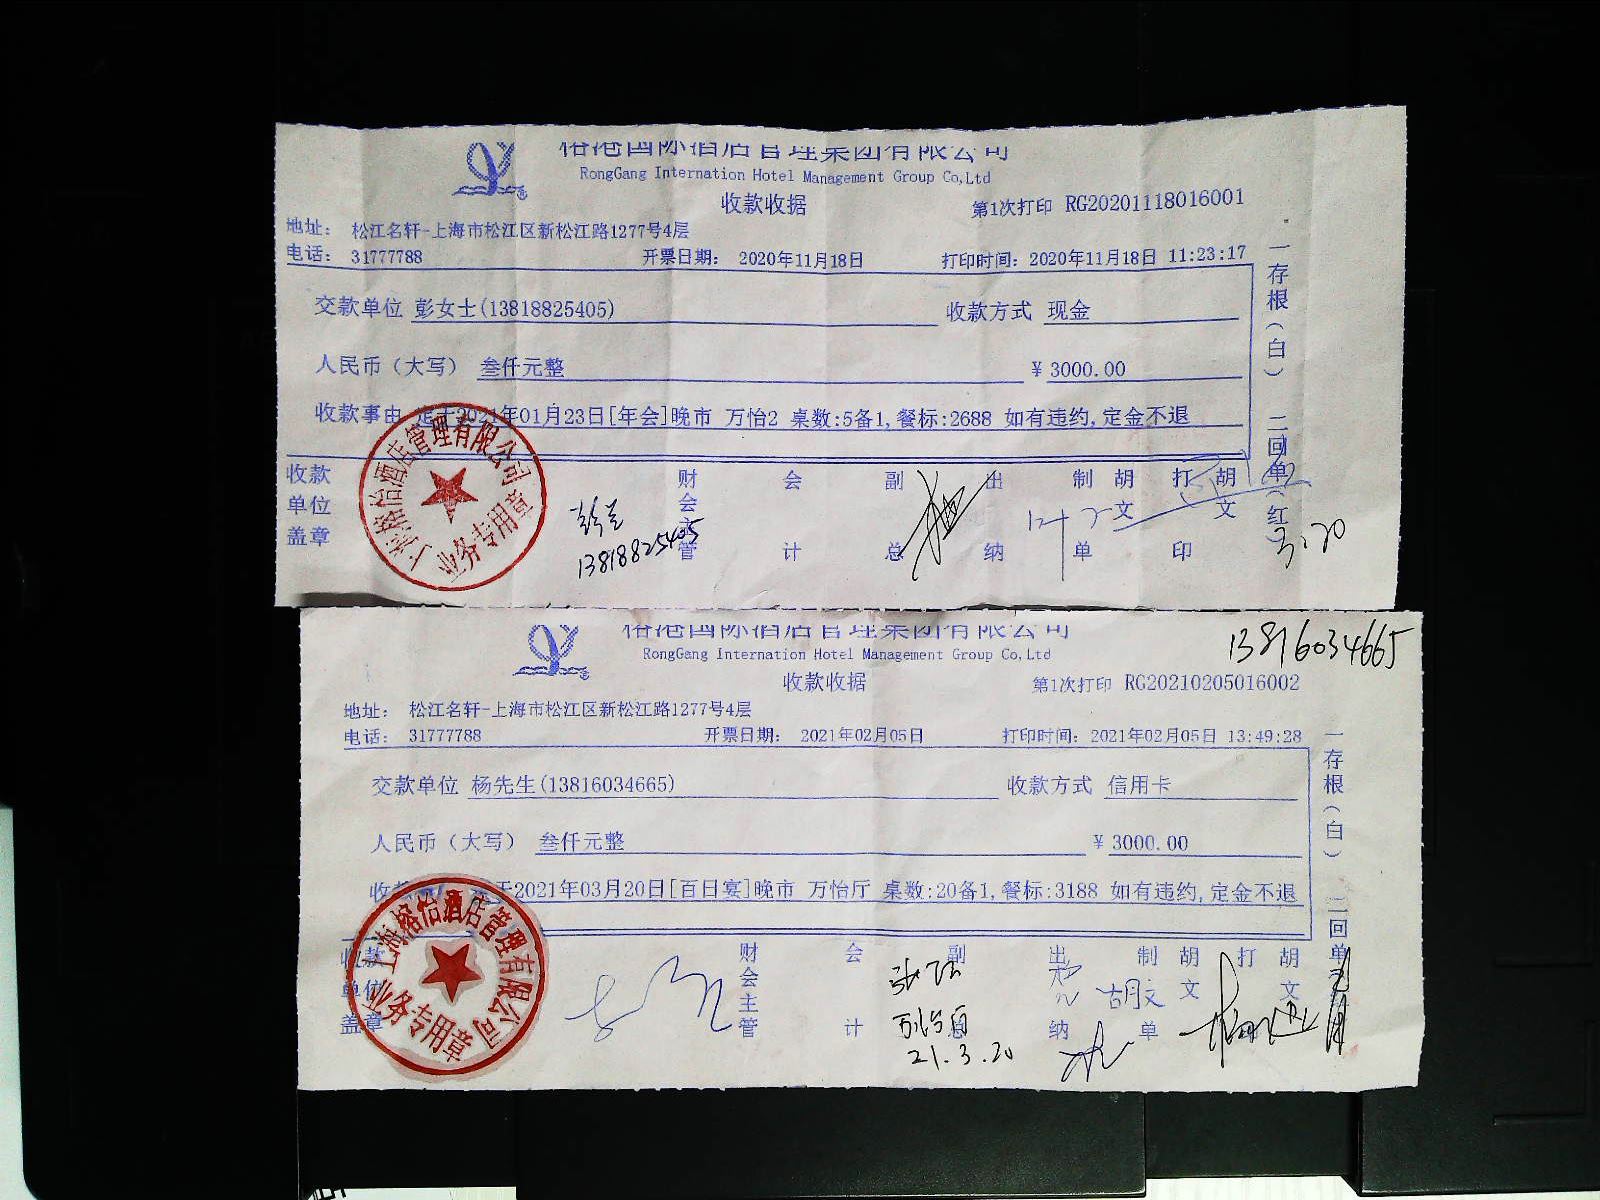 榕港国际酒店管理集团有限公司
RongGang Internation Hotel Management Group Co,Ltd
收款收据
第1次打印 RG20201118016001
地址： 松江名轩-上海市松江区新松江路1277号4层
电话： 31777788 开票日期： 2020年11月18日 打印时间：2020年11月18日 11:23:17
交款单位 彭女士(13818825405) 收款方式 现金
人民币（大写） 叁仟元整 ¥ 3000.00
收款事由 定于2021年01月23日[年会]晚市 万怡2 桌数:5备1,餐标:2688 如有违约,定金不退
收款单位盖章 财会主管 会计 副总 出纳 制单 胡文 打印 胡文
一存根（白） 二回单（红）
上海榕怡酒店管理有限公司
业务专用章
13818825405
3.20
榕港国际酒店管理集团有限公司
RongGang Internation Hotel Management Group Co,Ltd
13816034665
收款收据
第1次打印 RG20210205016002
地址： 松江名轩-上海市松江区新松江路1277号4层
电话： 31777788 开票日期： 2021年02月05日 打印时间：2021年02月05日 13:49:28
交款单位 杨先生(13816034665) 收款方式 信用卡
人民币（大写） 叁仟元整 ¥ 3000.00
收 于2021年03月20日[百日宴]晚市 万怡厅 桌数:20备1,餐标:3188 如有违约,定金不退
收款单位盖章 财会主管 会计 副总 出纳 制单 胡文 打 胡文
一存根（白） 二回单
上海榕怡酒店管理有限公司
业务专用章
胡文
21.3.20